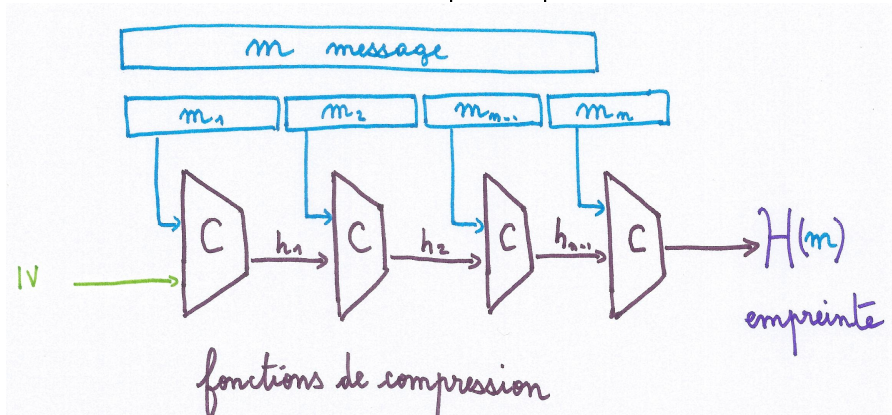 m message
m₁ m₂ mₙ₋₁ mₙ
C C C C
h₁ h₂ hₙ₋₁
IV
H(m)
empreinte
fonctions de compression